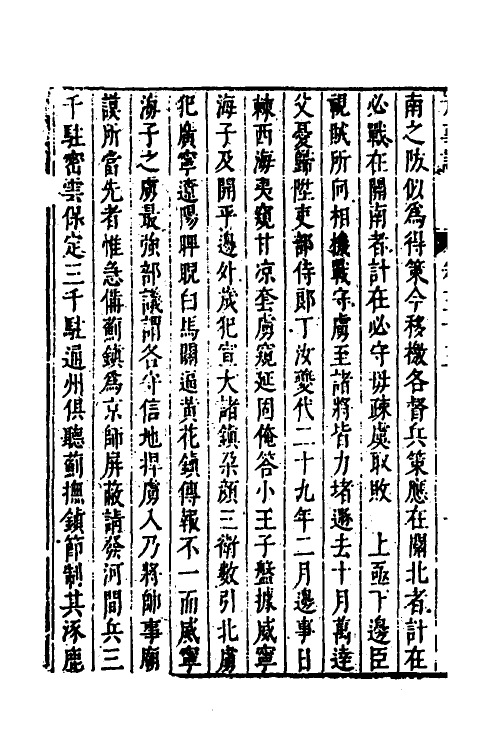 南之阪似為得策今移檄各督兵策應在關北者計在
必戰在關南者計在必守毋疎虞取敗　上亟下邊臣
視賊所向相機戰守虜至諸將皆力堵遂去十月萬達
父憂歸陞吏部侍郎丁汝夔代二十九年二月邊事日
棘西海夷窺甘涼套虜窺延固俺答小王子盤據威寧
海子及開平邊外歲犯宣大諸鎮朶顏三衛數引北虜
犯廣寧遼陽睥睨白馬關逼黃花鎮傳報不一而威寧
海子之虜最強部議謂各守信地捍虜人乃將帥事廟
謨所當先者惟急備薊鎮為京師屏蔽請發河間兵三
千駐密雲保定三千駐通州俱聽薊撫鎮節制其涿鹿